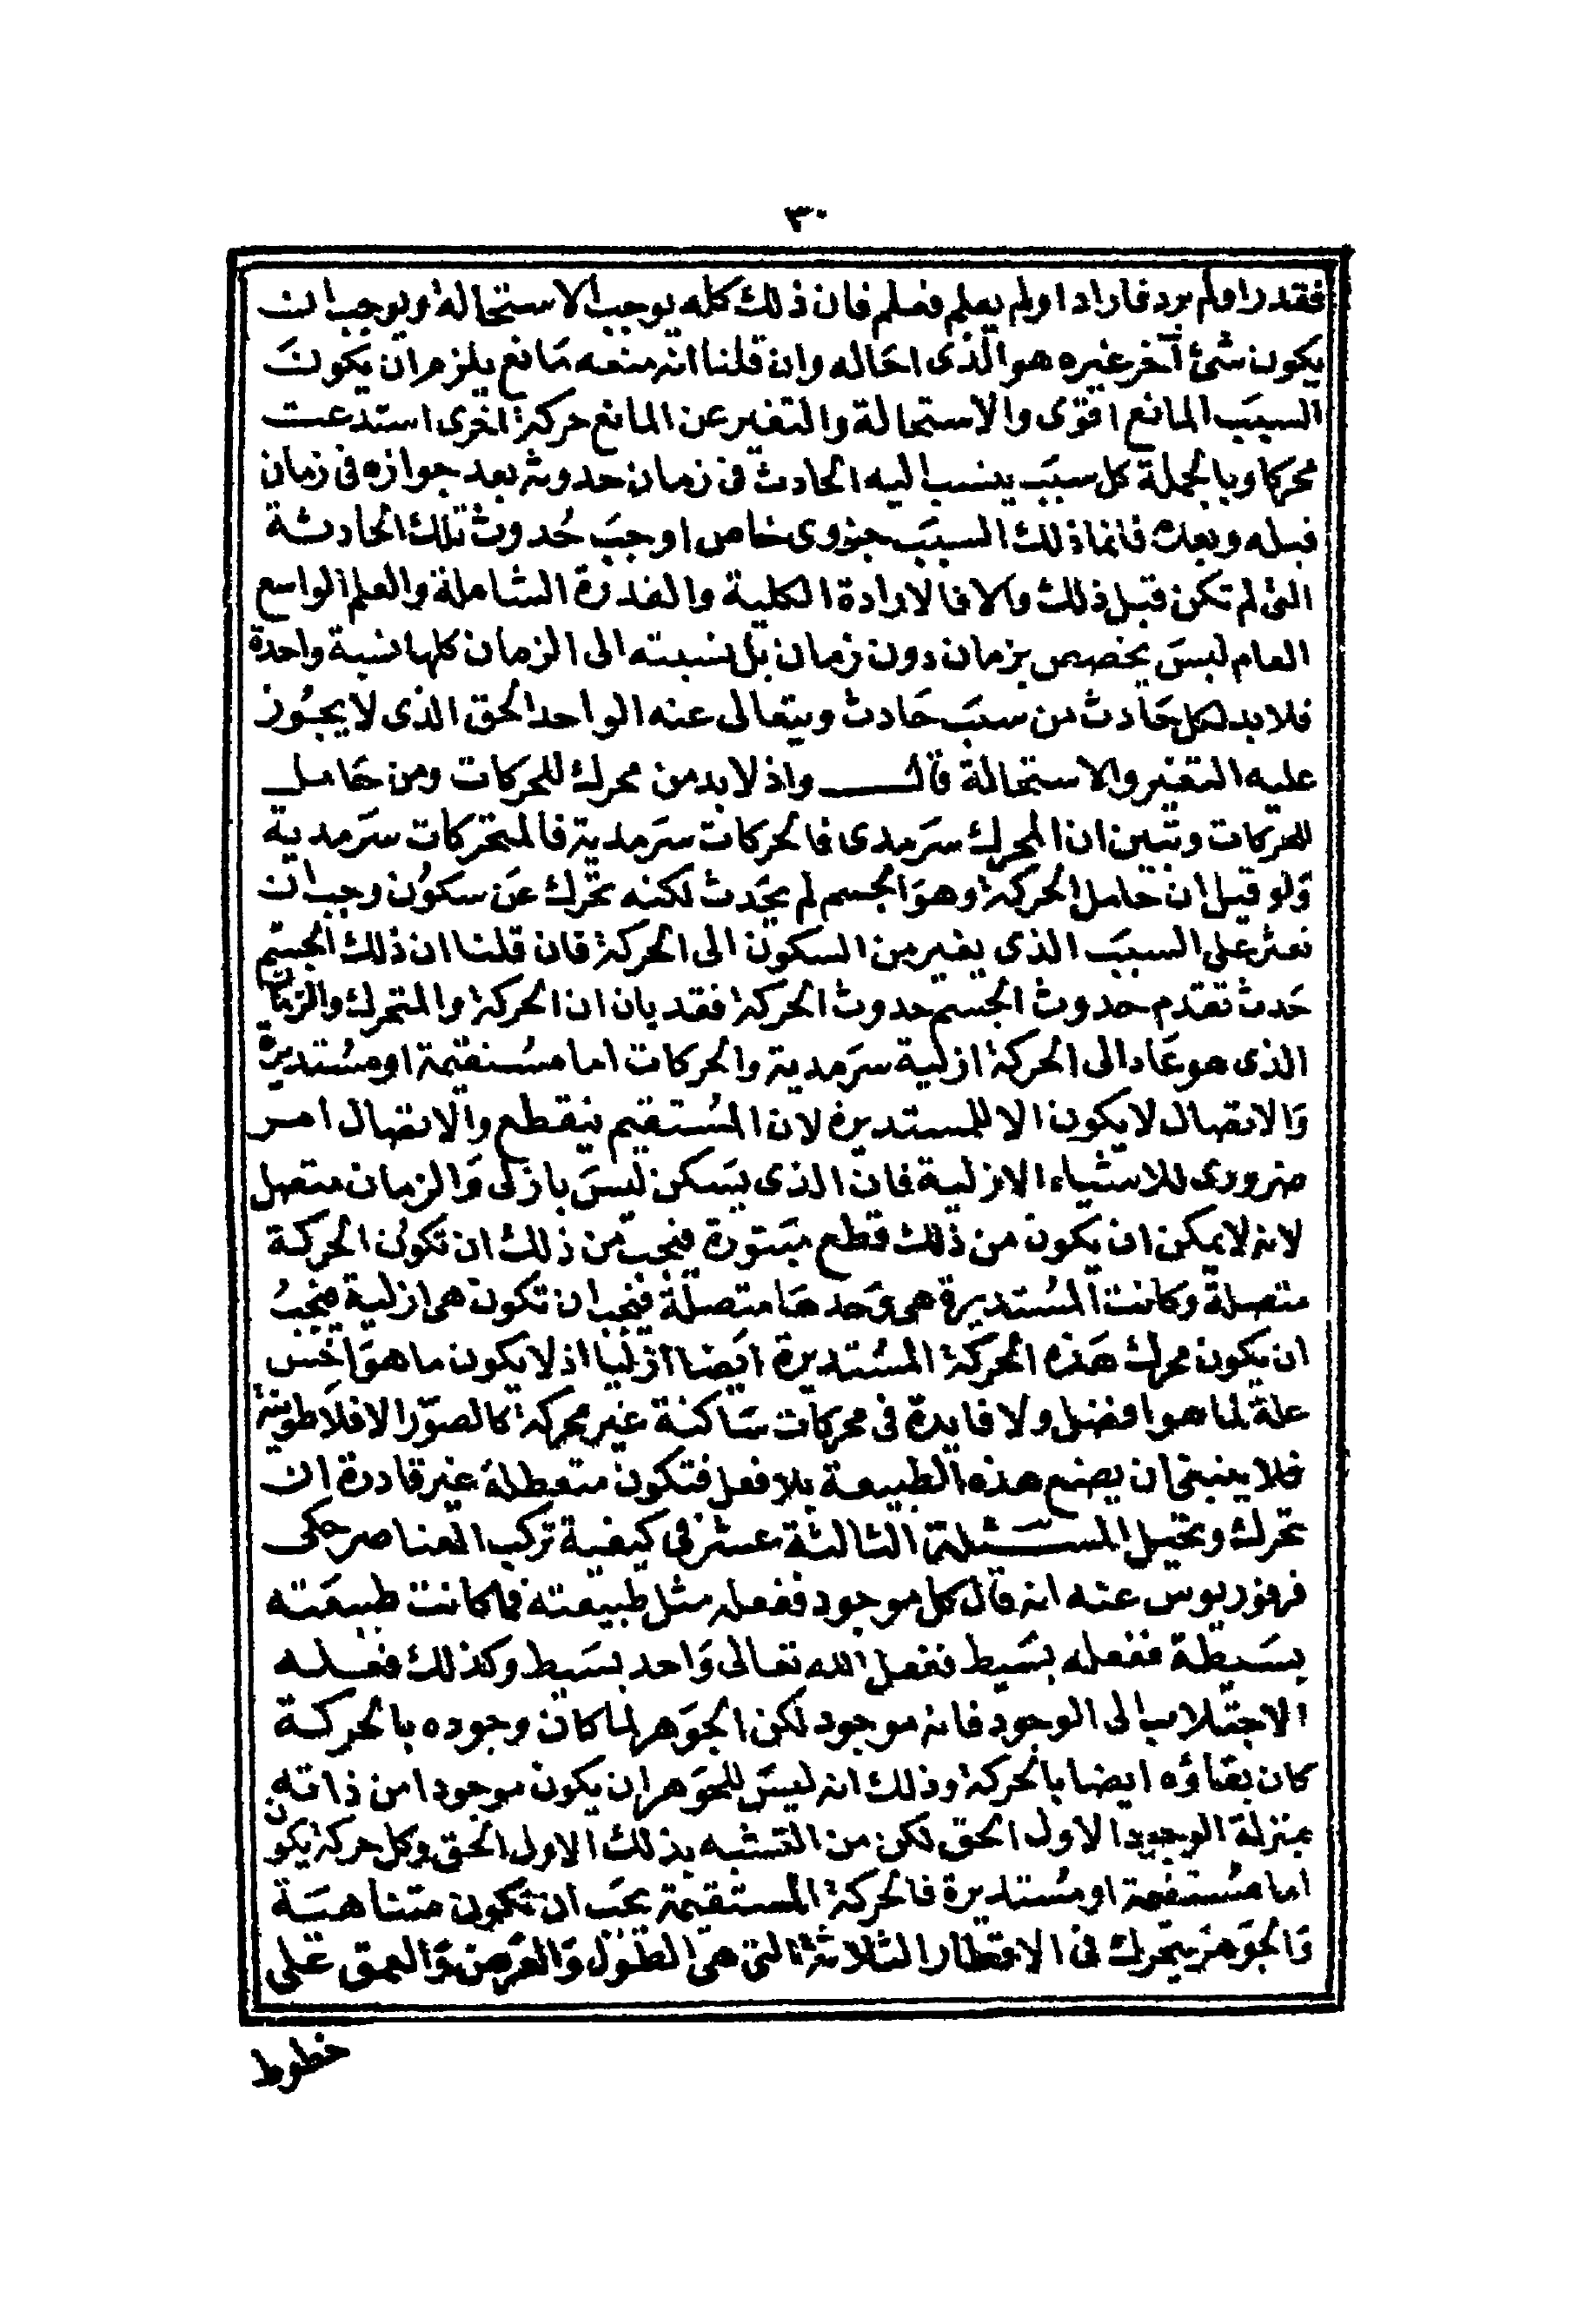 ٣٠
فقدر او لم يرد فاراد او لم يعلم فعلم فان ذلك كله يوجب الاستحالة ويوجب ان
يكون شئ آخر غيره هو الذى احاله وان قلنا انه منعه مانع يلزم ان يكون
السبب المانع اقوى والاستحالة والتغير عن المانع حركة اخرى استدعت
محركا وبالجملة كل سبب ينسب اليه الحادث فى زمان حدوثه بعد جوازه فى زمان
قبله وبعده فانما ذلك السبب جزوى خاص اوجب حُدوث تلك الحادثة
التى لم تكن قبل ذلك والا فالارادة الكلية والقدرة الشاملة والعلم الواسع
العام ليسَ يخصص بزمان دون زمان بل نسبته الى الزمان كلها نسبة واحدة
فلا بد لكل حَادث من سببَ حَادث ويتعالى عنه الواحد الحق الذى لا يجُوز
عليه التغير والاستحالة قال واذ لا بد من محرك للحركات ومن حَامل
للحركات وتبين ان المحرك سرَمدى فالحركات سرَمدية فالمتحركات سرَمدية
وَلو قيل ان حامل الحركة وهوَ الجسم لم يحَدث لكنه تحَرك عَن سكوُن وجب ان
نعثر على السببَ الذى يغير من السكون الى الحركة فان قلنا ان ذلك الجسم
حَدث تقدم حدوث الجسم حدوث الحركة فقد بان ان الحركة والمتحرك والزمان
الذى هو عَاد الى الحركة ازلية سرَمدية والحركات اما مسُتقيمة او مسُتديرة
وَالاتصال لا يكون الا للمستديرة لان المسُتقيم ينقطع والاتصال امر
ضرورى للاشياء الازلية فان الذى يسَكن ليسَ بازلى وَالزمان متصل
لانه لا يمكن ان يكون من ذلك قطع مبتورة فيجب من ذلك ان تكوُن الحركة
متصلة وكانت المسُتديرة هى وَحدهَا متصلة فيجب ان تكون هى ازلية فيجبُ
ان يكون محرك هَذه الحركة المسُتديرة ايضَا ازليا اذ لا يكون ما هوَ اخس
علة لما هو افضل ولا فايدة فى محركات سَاكنة غير محركة كالصوَر الافلاطونية
فلا ينبغى ان يضع هذه الطبيعة بلا فعل فتكون متعطلة غير قادرة ان
تحرك وتحيل المسـئلة الثالثة عشر فى كيفية تركب العناصر حكى
فرفوريوس عنه انه قال كل موجود ففعله مثل طبيعته فما كانت طبيعَته
بسَيطة ففعله بسَيط ففعل الله تعالى وَاحد بسَيط وكذلك فعله
الاجتلاب الى الوجود فانه موجود لكن الجوَهر لما كان وجوده بالحركة
كان بقاؤه ايضا بالحركة وذلك انه ليسَ للجوَهر ان يكون موجودا من ذاته
بمنزلة الوجود الاول الحق لكن من التشبه بذلك الاول الحق وكل حركة يكون
اما مسُتقيمة او مسُتديرة فالحركة المستقيمة يجَب ان تكون متناهيَة
وَالجوَهر يتحرك فى الاقطار الثلاثة التى هى الطوُل وَالعرَض وَالعمق عَلى
خطوط